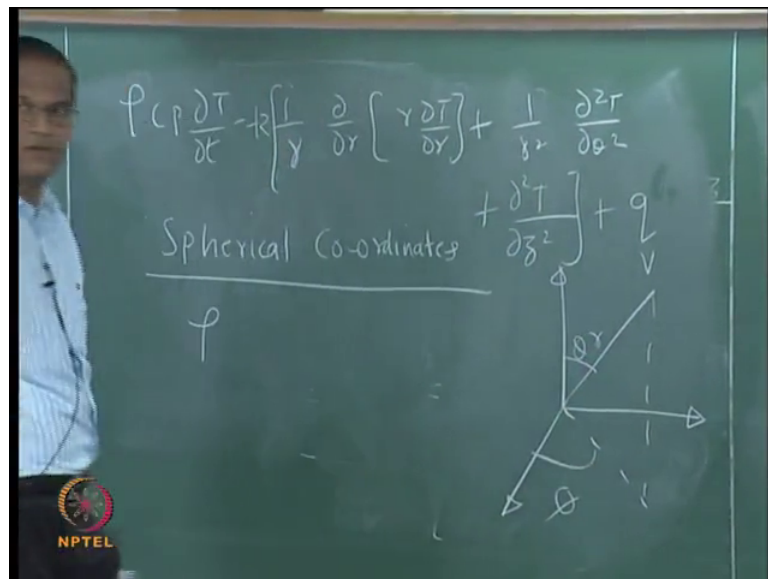 ρ Cp ∂T/∂t = k[1/r ∂/∂r [r ∂T/∂r] + 1/r² ∂²T/∂θ²
+ ∂²T/∂z²] + q
Spherical Co-ordinates
ρ
θ r
φ
NPTEL